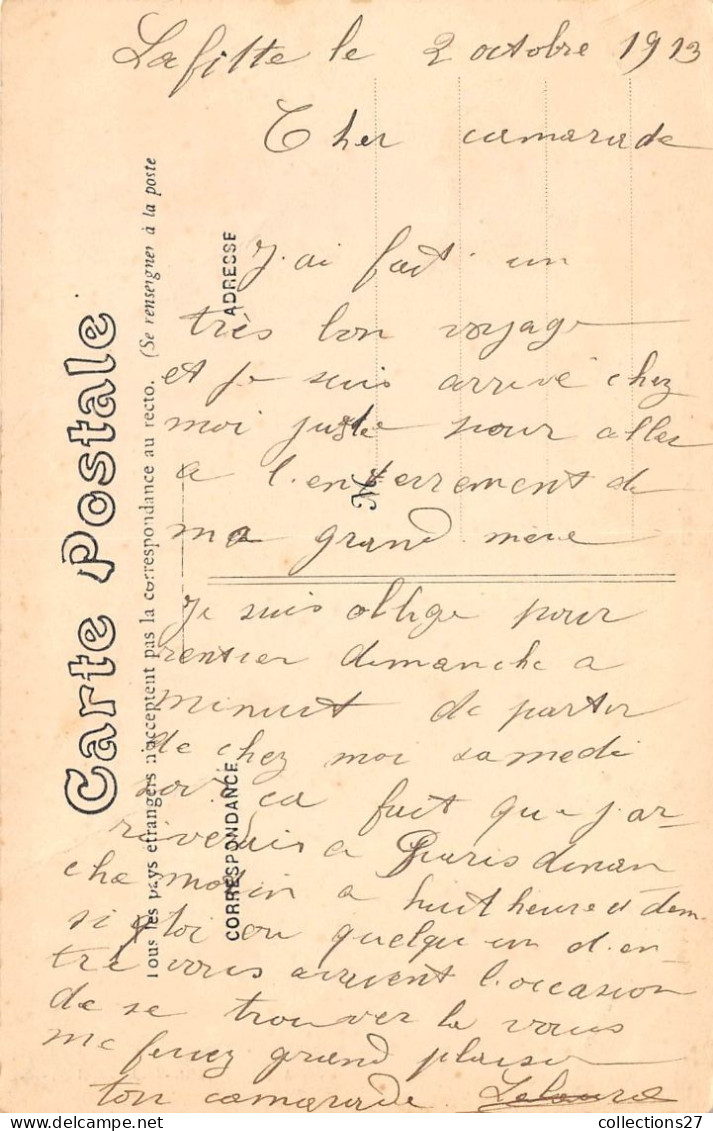 Lafitte le 2 octobre 1913
Cher camarade
J'ai fait un
très bon voyage
et je suis arrivé chez
moi juste pour aller
a l'enterrement de
ma grand mere
Je suis oblige pour
rentrer dimanche a
minuit de partir
de chez moi samedi
soir ca fait que j'ar-
riverais a Paris diman
che matin a huit heure et dem
si toi ou quelqu'un d'en
tre vous avaient l'occasion
de se trouver la vous
me ferez grand plaisir
ton camarade
Carte Postale
Tous les pays etrangers n'acceptent pas la correspondance au recto. (Se renseigner à la poste
ADRESSE
M
CORRESPONDANCE
collections27